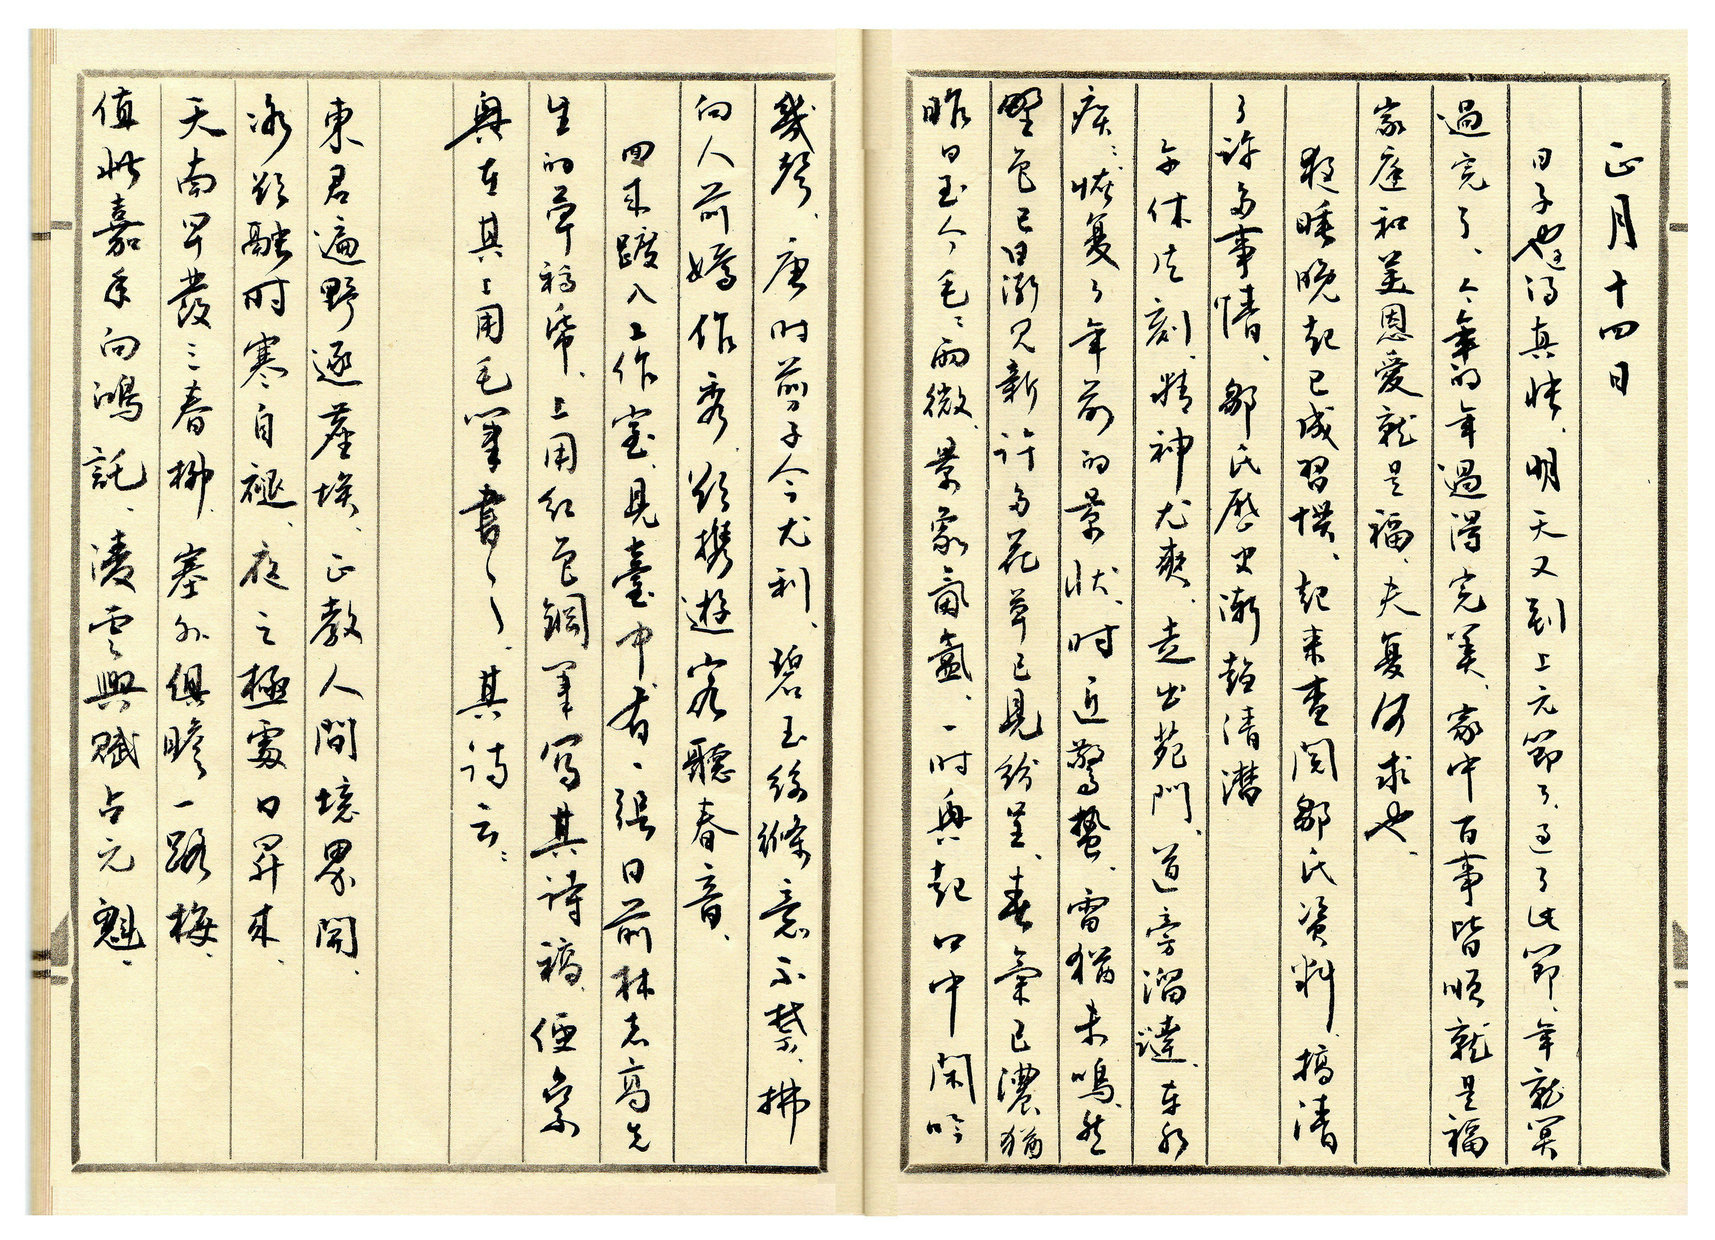 正月十四日
日子也過得真快、明天又到上元節了、過了此節、年就算
過完了、今年的年過得完美、家中百事皆順就是福
家庭和美恩愛就是福、夫复何求也、
夜睡晚起已成習慣、起来查阅鄒氏資料、搞清
了许多事情、鄒氏歷史漸趋清潜
午休片刻、精神尤爽、走出苑門、道旁溜躂、车水
恢复了年前的景状、时近驚蟄、雷猶未鳴、然
野色已日漸见新、许多花草已見紛呈、春氣已濃、猶
昨日至今毛毛雨微、景象氤氳、一时興起口中閑吟
幾聲、唐时剪子今尤利、碧玉絲縧意不禁、拂
向人前嬌作秀、欲攜遊客聽春音、
回来踱入工作室、見臺中有一張日前林志高先
生的草稿紙、上用红色鋼筆写其詩稿、便索
興在其上用毛筆書之、其诗云：
東君遍野逐塵埃、正教人間境界開、
冰欲融时寒自褪、夜之極處日昇来、
天南早發三春柳、塞外俱瞻一路梅、
值此嘉年向鴻託、凌雲興賦占元魁、